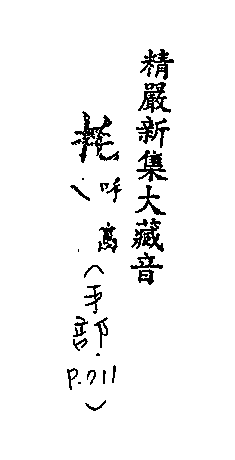 精嚴新集大藏音
撓呼高(手部P.011)